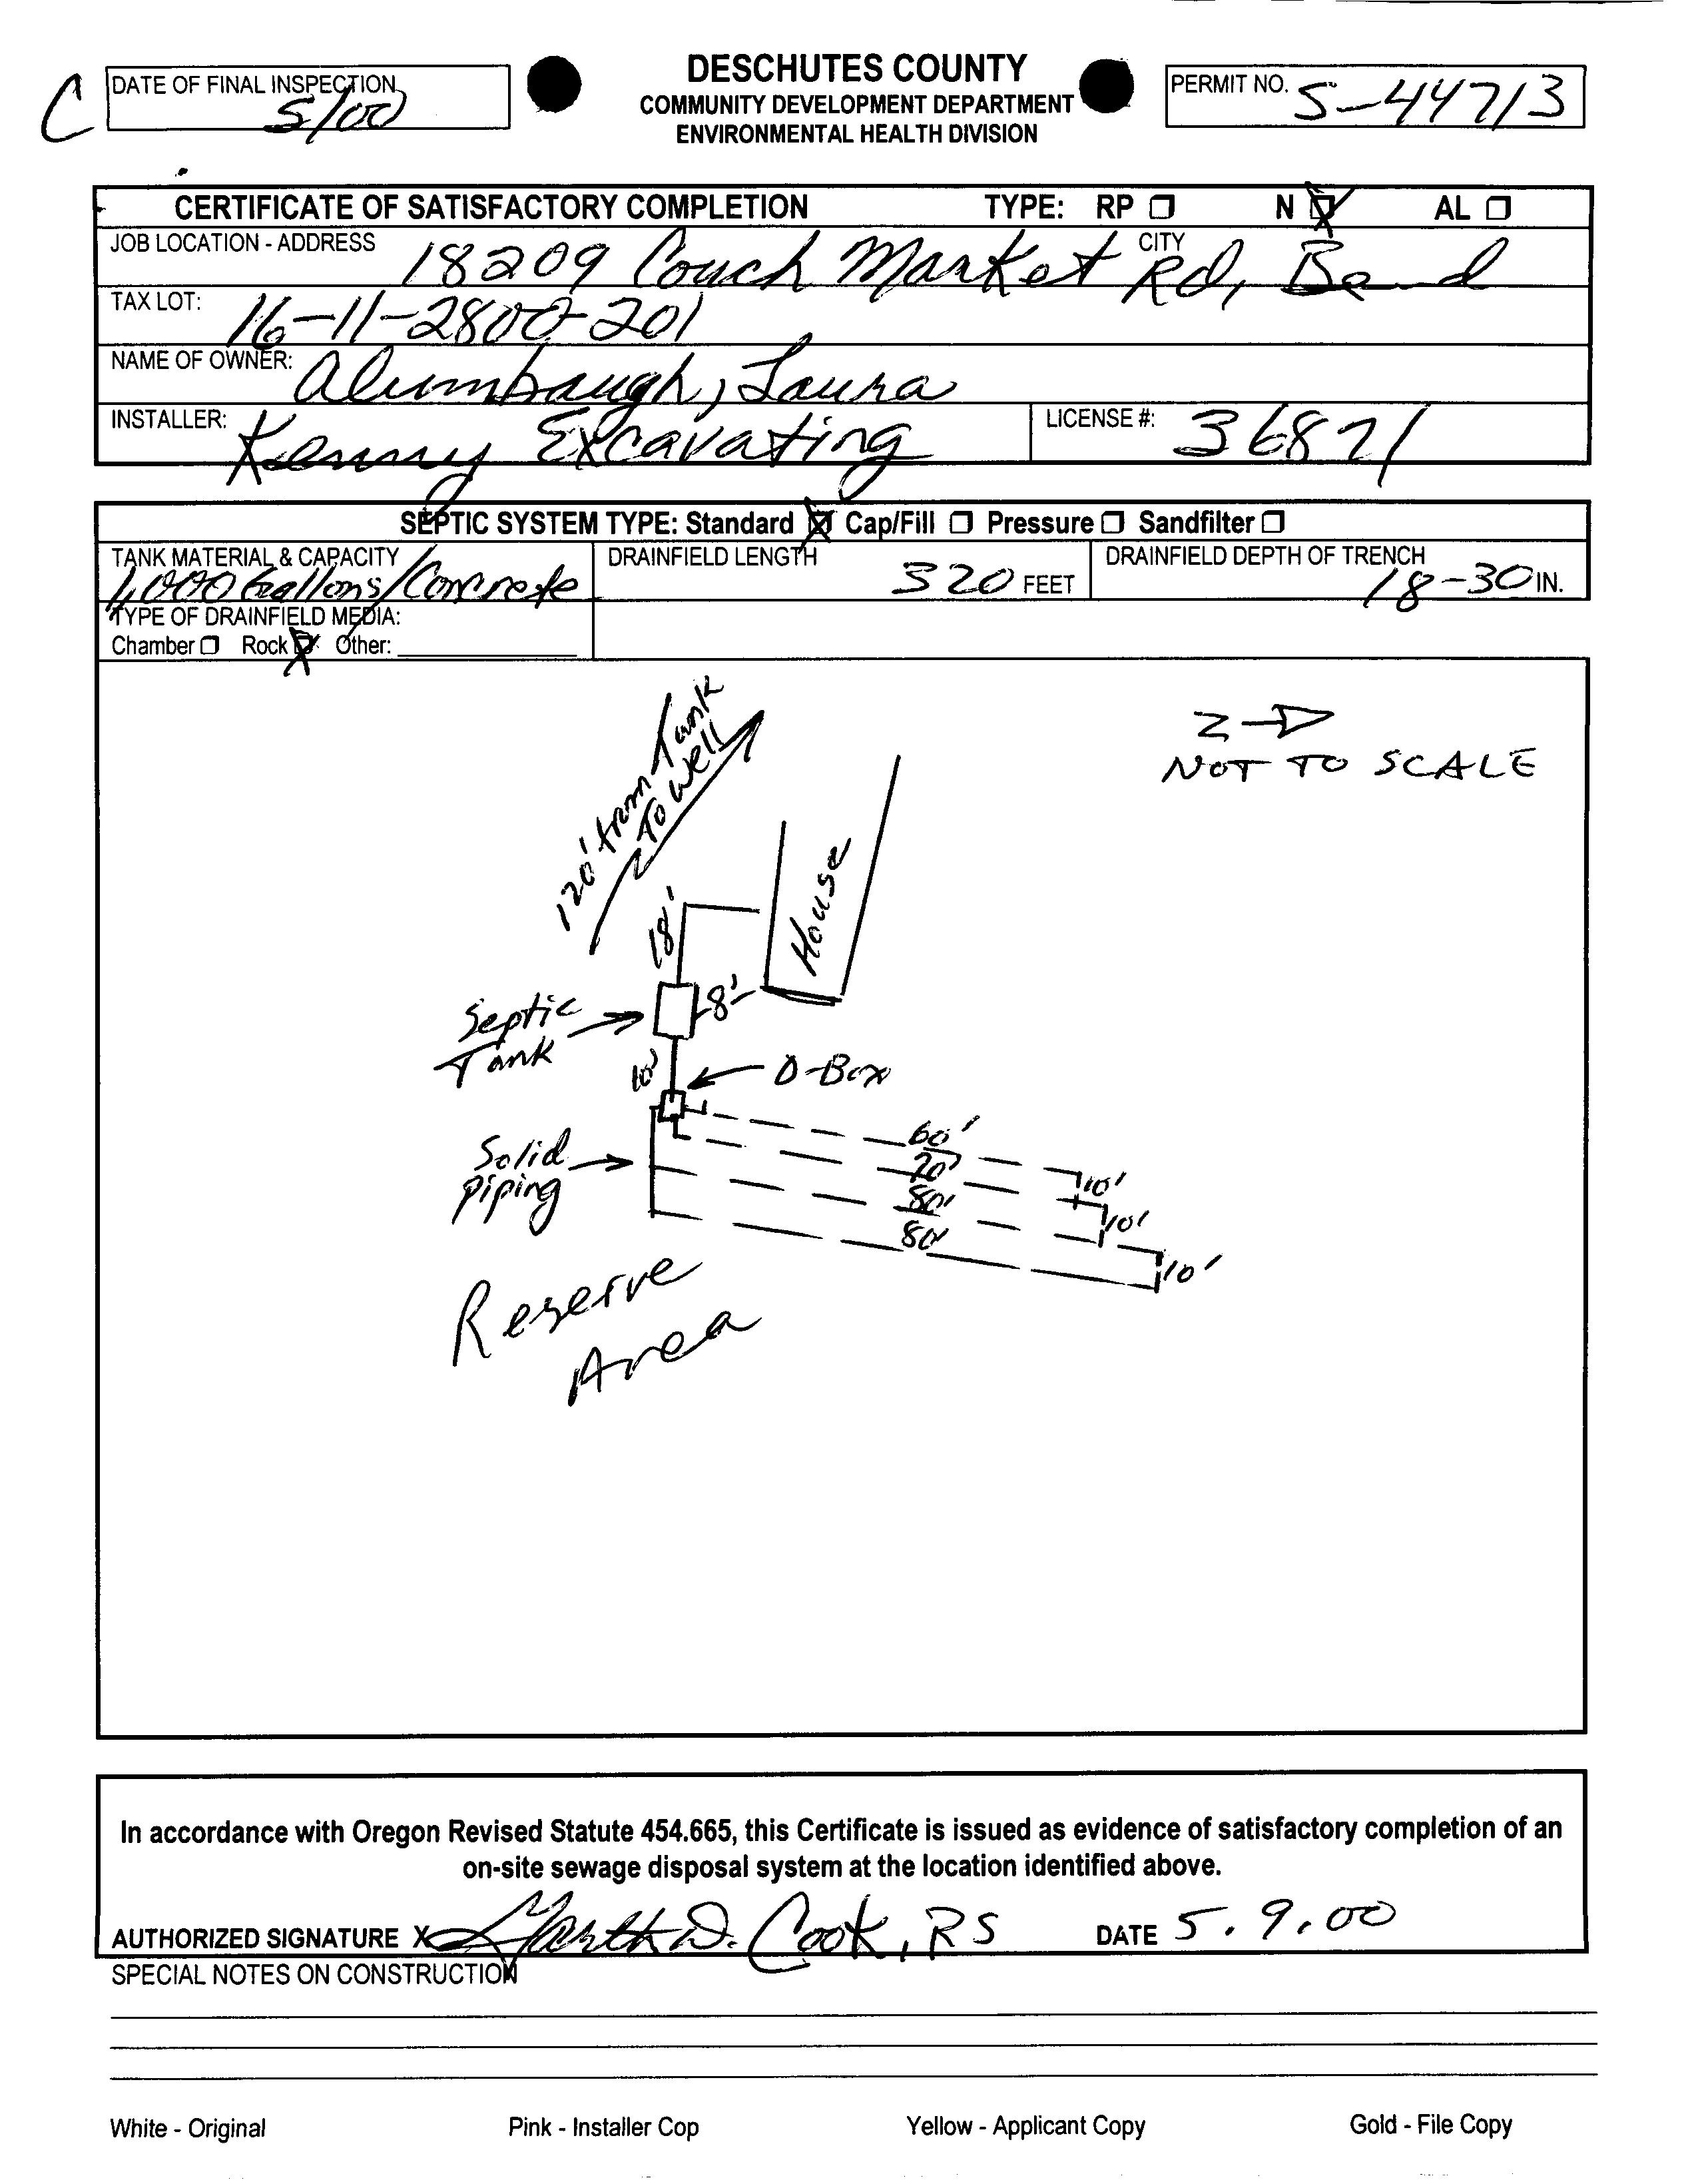 C
DATE OF FINAL INSPECTION
5/00
DESCHUTES COUNTY
COMMUNITY DEVELOPMENT DEPARTMENT
ENVIRONMENTAL HEALTH DIVISION
PERMIT NO. S-44713
CERTIFICATE OF SATISFACTORY COMPLETION TYPE: RP N AL
JOB LOCATION - ADDRESS 18209 Couch Market Rd, CITY Bend
TAX LOT: 16-11-2800-201
NAME OF OWNER: Alumbaugh, Laura
INSTALLER: Kenny Excavating LICENSE #: 36871
SEPTIC SYSTEM TYPE: Standard Cap/Fill Pressure Sandfilter
TANK MATERIAL & CAPACITY DRAINFIELD LENGTH DRAINFIELD DEPTH OF TRENCH
1,000 Gallons/Concrete 320 FEET 18-30 IN.
TYPE OF DRAINFIELD MEDIA:
Chamber Rock Other:
120' from Tank
To Well
Z
NOT TO SCALE
House
18'
8'
Septic
Tank
10'
D-Box
Solid
piping
60'
70'
80'
80'
10'
10'
10'
Reserve
Area
In accordance with Oregon Revised Statute 454.665, this Certificate is issued as evidence of satisfactory completion of an
on-site sewage disposal system at the location identified above.
AUTHORIZED SIGNATURE X Garth D. Cook, RS DATE 5.9.00
SPECIAL NOTES ON CONSTRUCTION
White - Original Pink - Installer Cop Yellow - Applicant Copy Gold - File Copy